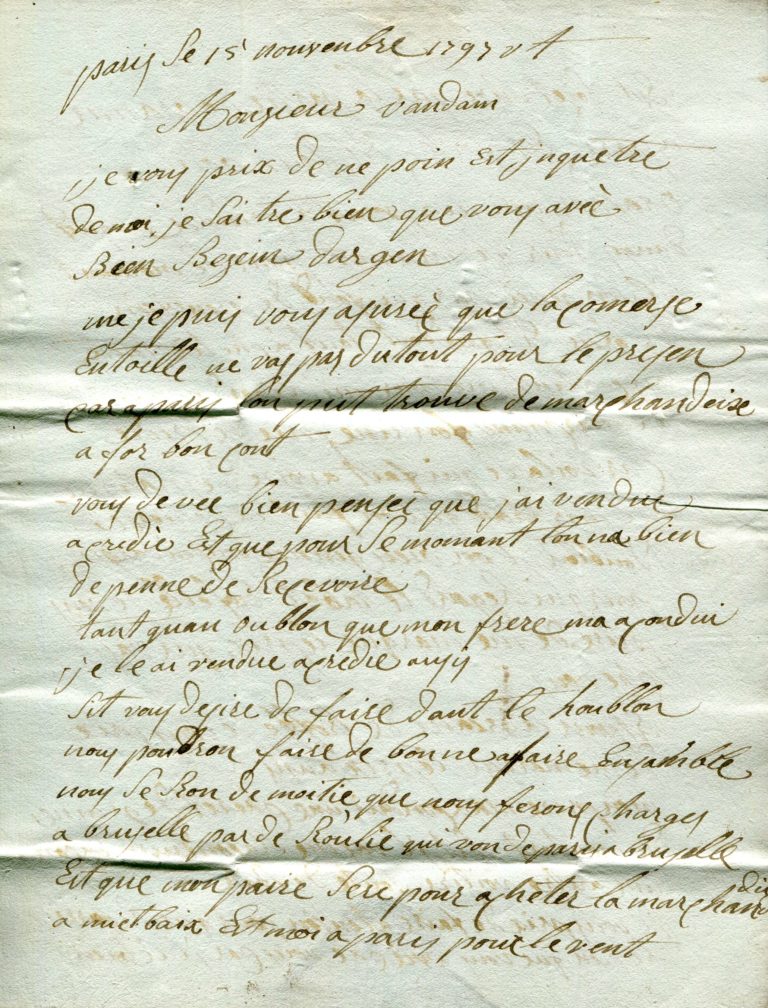 paris Le 15 nouvenbre 1797 v st
Monsieur vandam
je vous prix de ne poin Est jnquetre
de moi, je Sai tre bien que vous avéè
Bien Bezein dargen
me je puis vous asureè que la comerse
En toille ne vas pas du tout pour le presen
car a paris lon peut trouvé de marchandeixe
a for bon cont
vous de vee bien penseé que j'ai vendue
a credie Est que pour Se momant lon na bien
de penne de Recevoire
tant quau oublon que mon frere ma a condui
je le ai vendue a credie ausy
Sit vous desire de faire dant le houblon
nous pouron faire de bonne afaire Ensamble
nous Se Ron de moitie que nous ferons charges
a bruselle par de Roulie qui von de paris a bruselle
Est que mon paire Sere pour acheter la marchandise
a Est moi a paris pour le vent